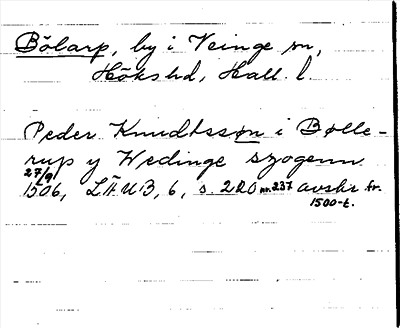 Bölarp, by i Veinge sn,
Höks hd, Hall. l.
Peder Knudtssøn i Bølle-
rup y Wedinge szogenn
27/9
1506, LÄUB, 6, s. 220 nr. 237 avskr. fr.
1500-t.